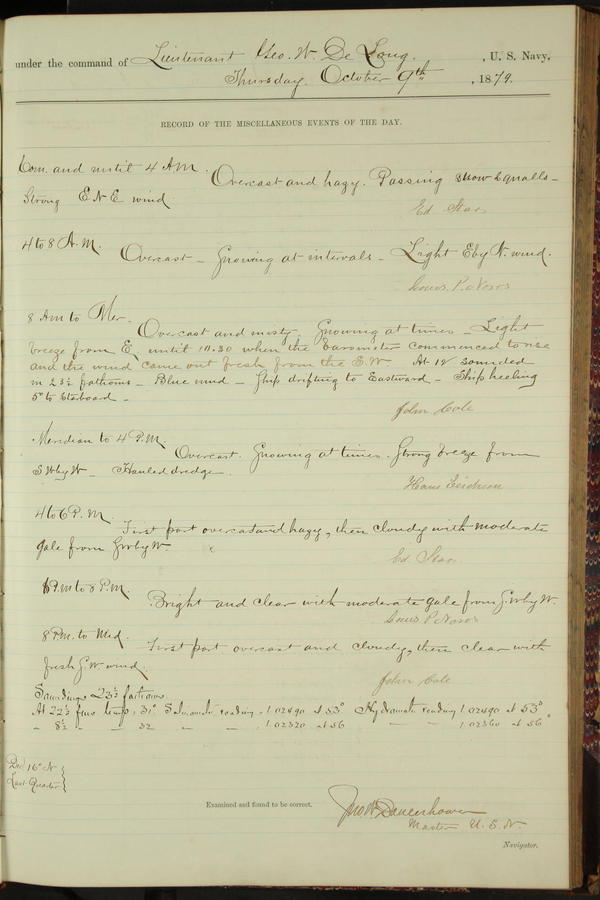 under the command of Lieutenant Geo. W. De Long, U. S. Navy.
Thursday, October 9th, 1879.
RECORD OF THE MISCELLANEOUS EVENTS OF THE DAY.
Com. and until 4 A.M.
Overcast and hazy. Passing snow squalls –
Strong ENE wind.
Ed Star
4 to 8 A.M.
Overcast – Snowing at intervals – Light E by N. wind.
Louis P. Noros
8 AM to Mer.
Overcast and misty. Snowing at times – Light
breeze from E. until 10.30 when the barometer commenced to rise
and the wind came out fresh from the S.W. At 12 sounded
in 23½ fathoms – Blue mud – Ship drifting to Eastward – Ship heeling
5° to starboard –
John Cole
Meridian to 4 P.M.
Overcast. Snowing at times. Strong breeze from
SW by W – Hauled dredge
Hans Erichsen
4 to 6 P.M.
First part overcast and hazy, then cloudy with moderate
gale from SW by W
Ed Star
6 P.M to 8 P.M.
Bright and clear with moderate gale from S.W by W.
Louis P. Noros
8 P.M. to Mid.
First part overcast and cloudy, then clear with
fresh S.W. wind.
John Cole
Soundings 23½ fathoms.
At 22½ fms temp. 31° reading 1.02490 at 53° reading 1.02490 at 53°
" 8½ " " 32 " " 1.02320 at 56 " " 1.02360 at 56°
Dec 16° N
Last Quarter
Examined and found to be correct.
Jno W. Danenhower
Master U.S.N.
Navigator.